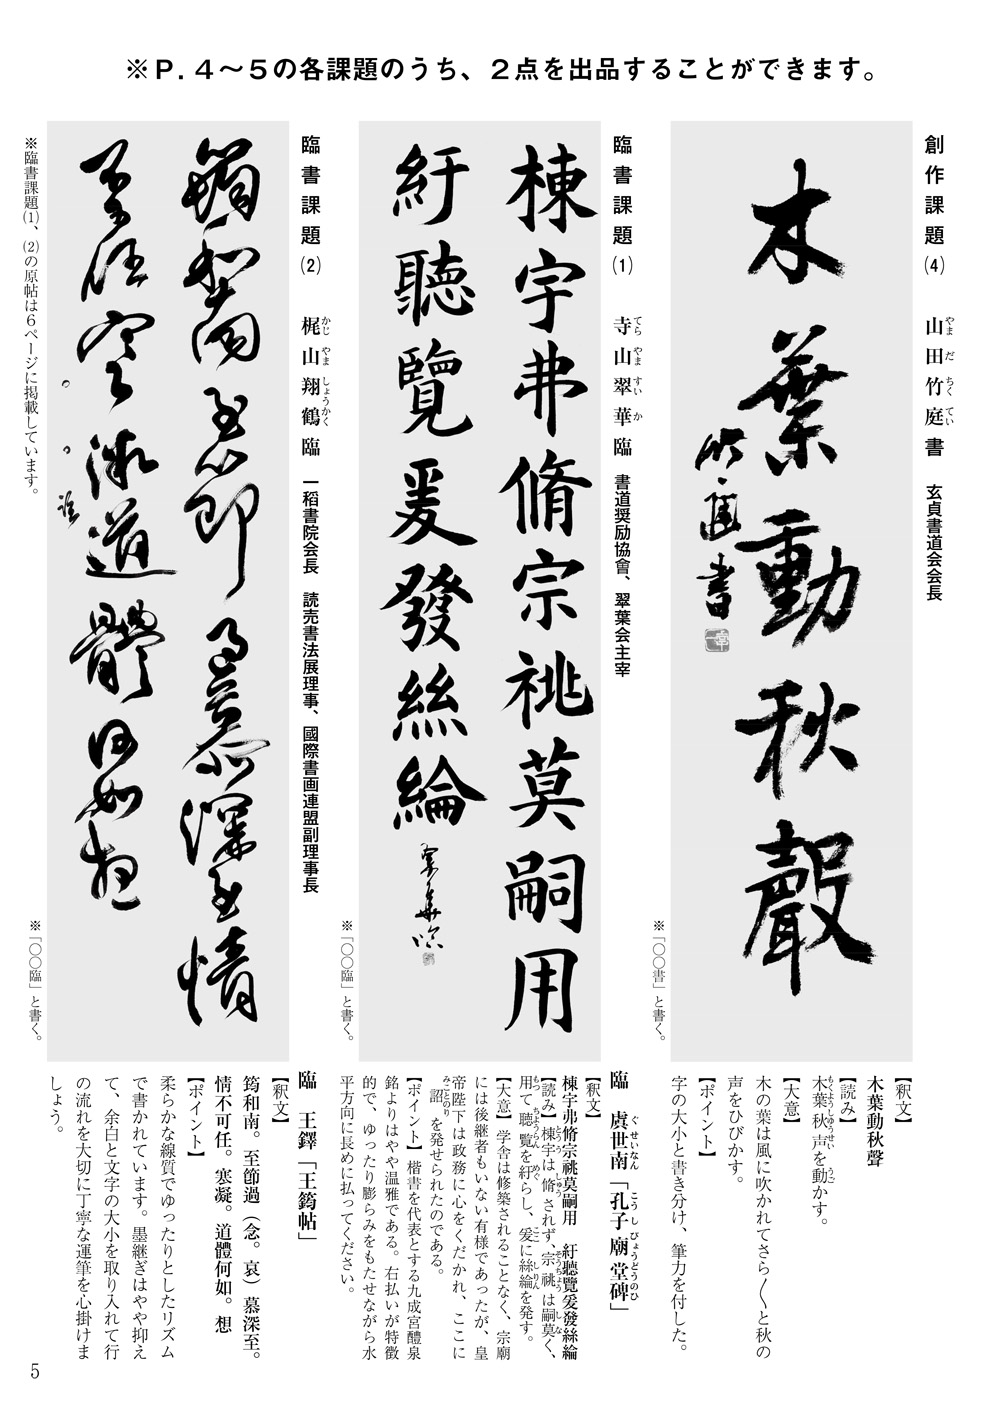 ※Ｐ．４〜５の各課題のうち、２点を出品することができます。
創作課題(4)　山田竹庭書　玄貞書道会会長
やまだちくてい
木葉動秋聲
竹庭書
※「〇〇書」と書く。
【釈文】
木葉動秋聲
【読み】
木葉秋声を動かす。
もくようしゅうせい うご
【大意】
木の葉は風に吹かれてさら〱と秋の
声をひびかす。
【ポイント】
字の大小と書き分け、筆力を付した。
臨書課題(1)　寺山翠華臨　書道奨励協會、翠葉会主宰
てらやますいか
棟宇弗脩宗祧莫嗣用
紆聽覽爰發絲綸
翠華臨
※「〇〇臨」と書く。
臨　虞世南「孔子廟堂碑」
ぐせいなん こうしびょうどうのひ
【釈文】
棟宇弗脩宗祧莫嗣用　紆聽覽爰發絲綸
【読み】棟宇は脩されず、宗祧は嗣莫く、
とうう しゅう そうちょう しな
用て聴覧を紆らし、爰に絲綸を発す。
もって ちょうらん めぐ ここ しりん
【大意】学舎は修築されることなく、宗廟
には後継者もいない有様であったが、皇
帝陛下は政務に心をくだかれ、ここに
詔を発せられたのである。
みことのり
【ポイント】楷書を代表とする九成宮醴泉
銘よりはやや温雅である。右払いが特徴
的で、ゆったり膨らみをもたせながら水
平方向に長めに払ってください。
臨書課題(2)　梶山翔鶴臨　一稻書院会長　読売書法展理事、國際書画連盟副理事長
かじやましょうかく
筠和南至節過慕深至情
不可任寒凝道體何如想
※「〇〇臨」と書く。
臨　王鐸「王筠帖」
【釈文】
筠和南。至節過（念。哀）慕深至。
情不可任。寒凝。道體何如。想
【ポイント】
柔らかな線質でゆったりとしたリズム
で書かれています。墨継ぎはやや抑え
て、余白と文字の大小を取り入れて行
の流れを大切に丁寧な運筆を心掛けま
しょう。
※臨書課題(1)、(2)の原帖は６ページに掲載しています。
5